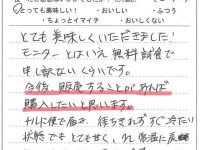 とっても美味しい！ ・おいしい ・ふつう
・ちょっとイマイチ ・おいしくない
とても美味しくいただきました！
モニターとはいえ無料試食で
申し訳ないくらいです。
今後、販売することがあれば
購入したいと思います。
で届き、待ちきれずすぐ冷たい
状態でもとても甘く、